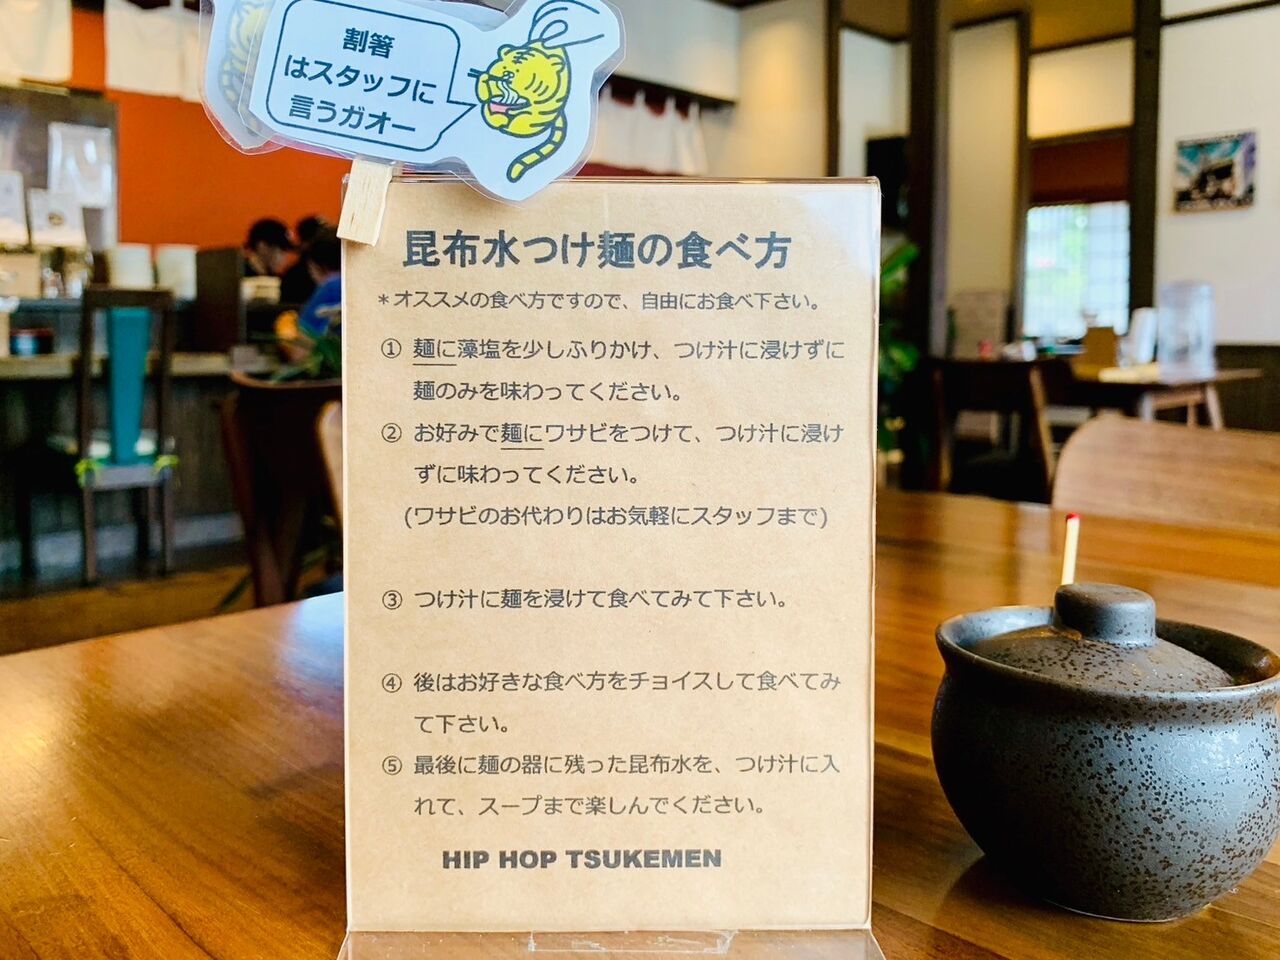 割箸
はスタッフに
言うガオー
昆布水つけ麺の食べ方
＊オススメの食べ方ですので、自由にお食べ下さい。
① 麺に藻塩を少しふりかけ、つけ汁に浸けずに
麺のみを味わってください。
② お好みで麺にワサビをつけて、つけ汁に浸け
ずに味わってください。
(ワサビのお代わりはお気軽にスタッフまで)
③ つけ汁に麺を浸けて食べてみて下さい。
④ 後はお好きな食べ方をチョイスして食べてみ
て下さい。
⑤ 最後に麺の器に残った昆布水を、つけ汁に入
れて、スープまで楽しんでください。
HIP HOP TSUKEMEN